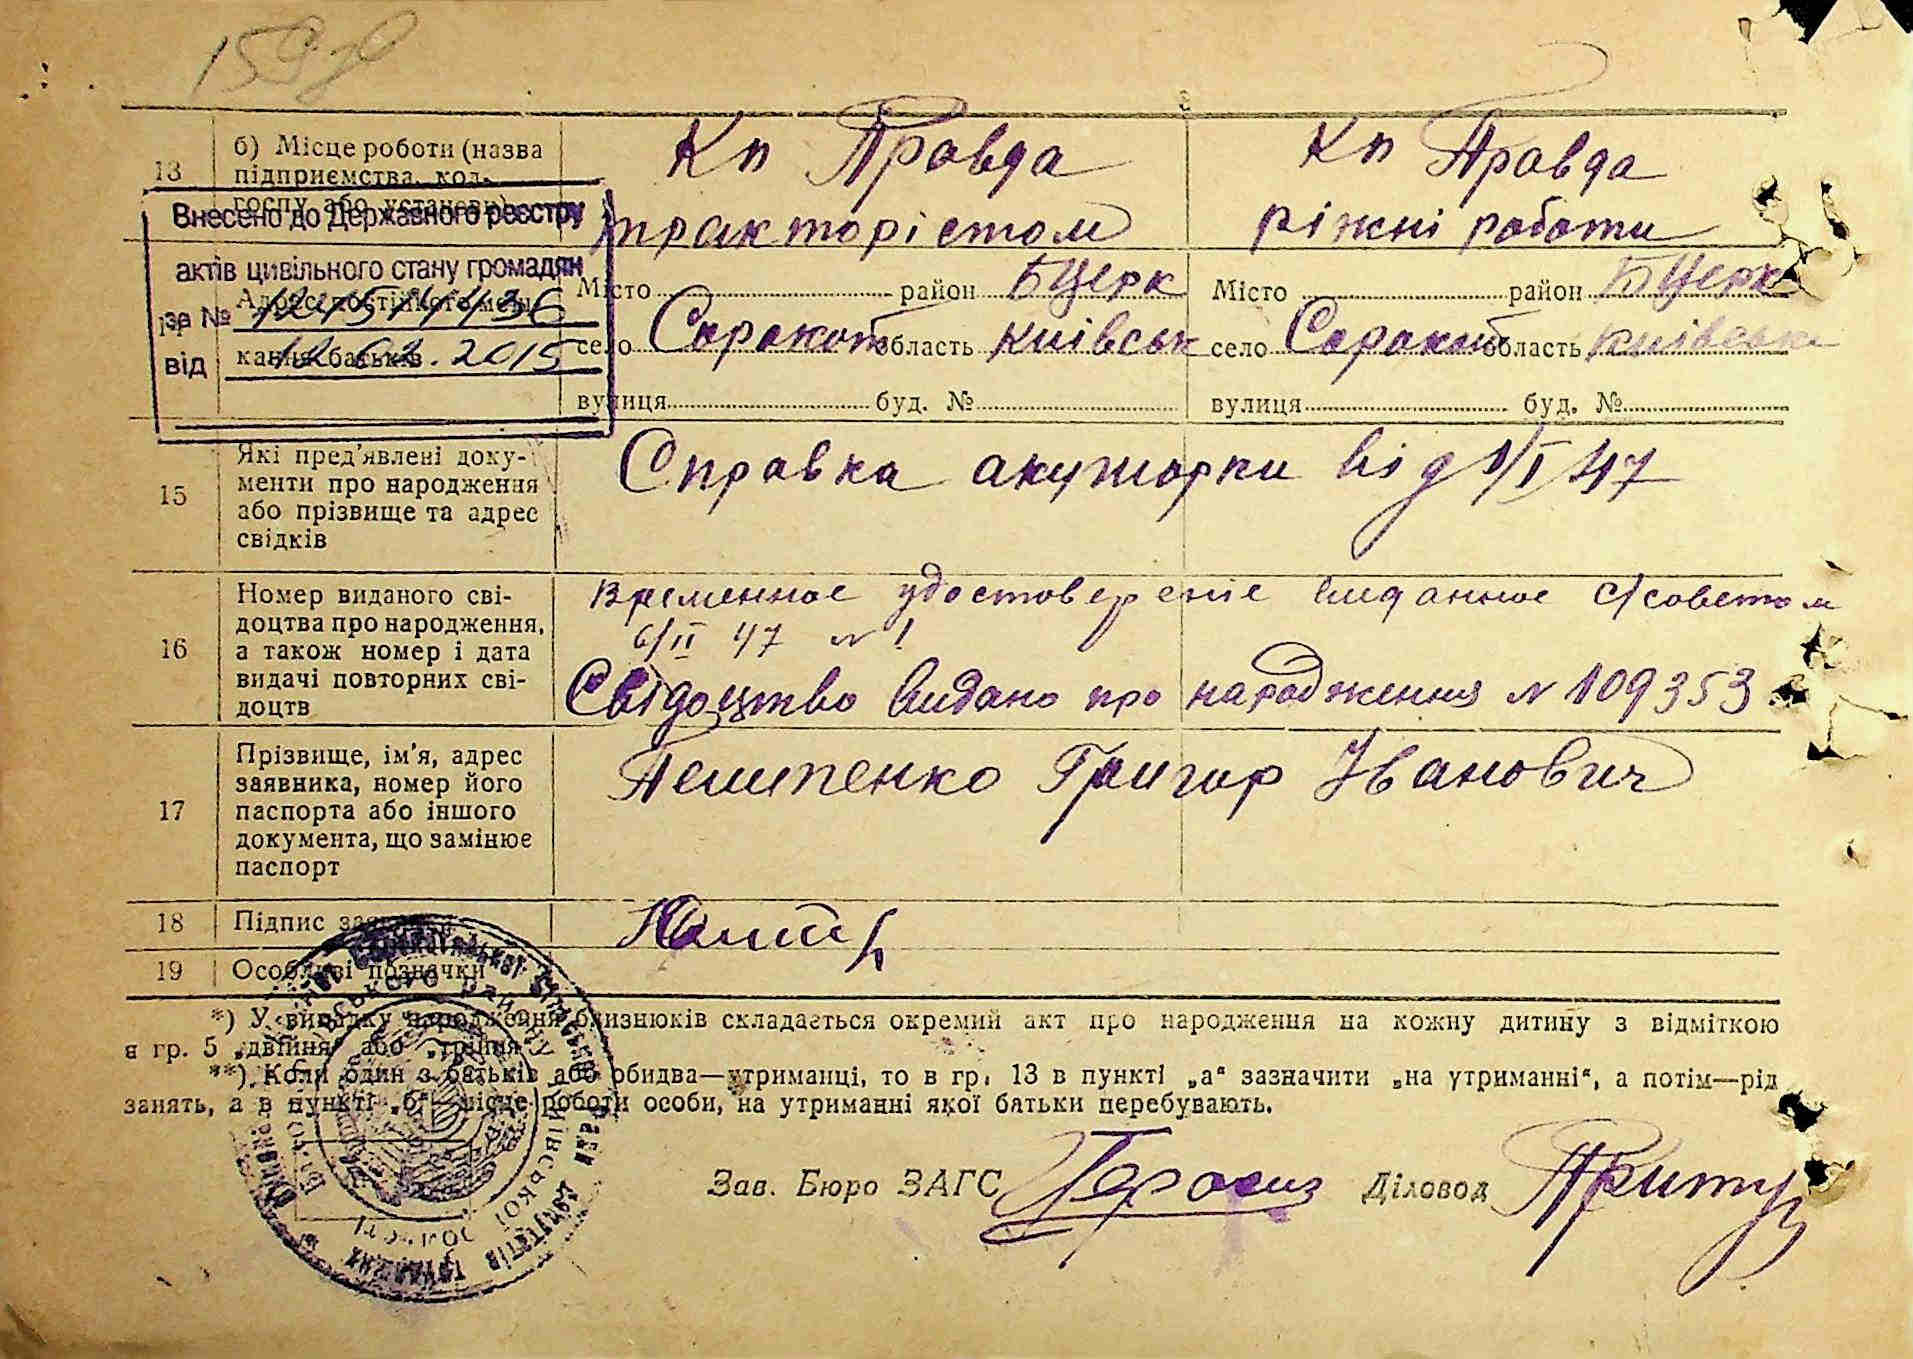 13 б) Місце роботи (назва підприємства, кол-
госпу або установи)
Кп Правда
трактористом
Кп Правда
ріжні роботи
Внесено до Державного реєстру
актів цивільного стану громадян
за №
від 12.02.2015
Адрес постійного меш-
кання батьків
Місто район БЦерк
село область Київськ
вулиця буд. №
Місто район БЦерк
село область Київськ
вулиця буд. №
15 Які пред'явлені доку-
менти про народження
або прізвище та адрес
свідків
Справка акушорки від 1/I 47
16 Номер виданого сві-
доцтва про народження,
а також номер і дата
видачі повторних сві-
доцтв
Временное удостоверение виданное с/советом
6/II 47 № 1
Свідоцтво видано про народження № 109353
17 Прізвище, ім'я, адрес
заявника, номер його
паспорта або іншого
документа, що замінює
паспорт
Григор Іванович
18 Підпис
19 Особливі позначки
*) У випадку народження близнюків складається окремий акт про народження на кожну дитину з відміткою
в гр. 5 „двійня" або „трійня".
**) Коли один з батьків або обидва—утриманці, то в гр. 13 в пункті „а" зазначити „на утриманні", а потім—рід
занять, а в пункті „б"—місце роботи особи, на утриманні якої батьки перебувають.
Зав. Бюро ЗАГС
Діловод